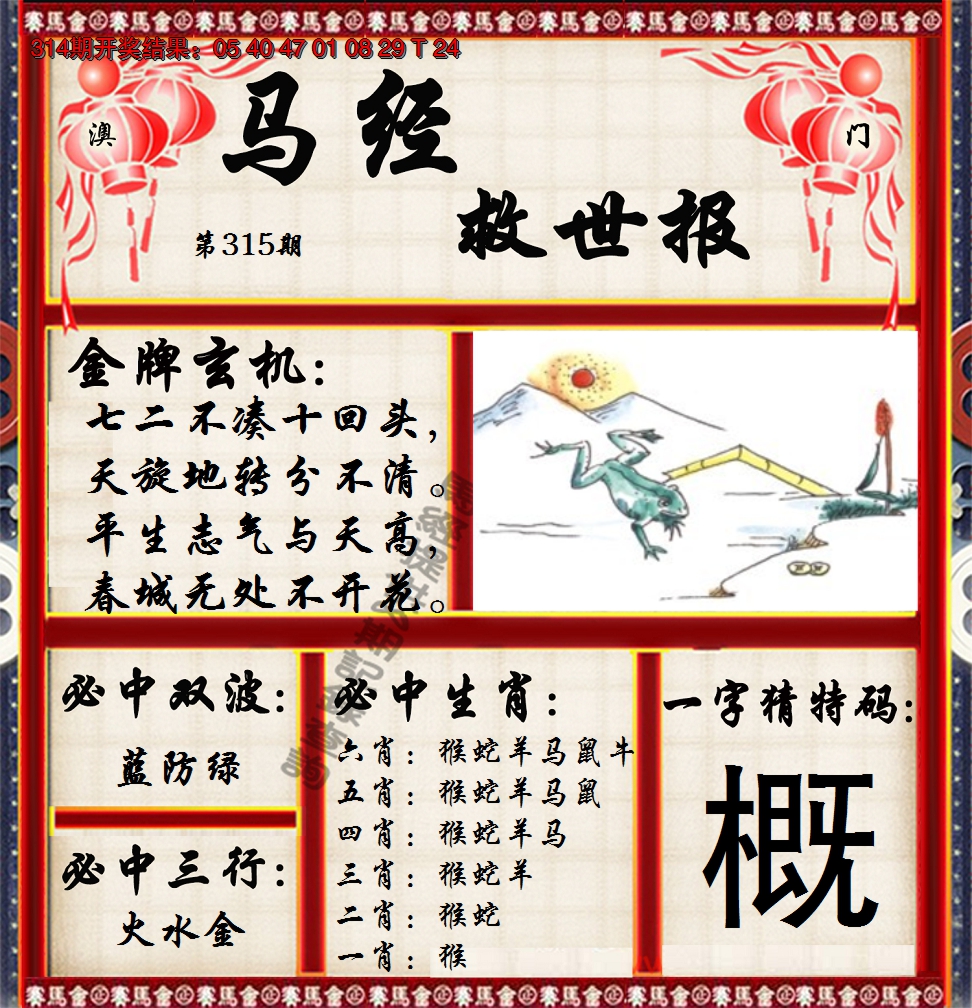 赛馬金㊣赛馬金㊣赛馬金㊣赛馬金㊣
314期开奖结果：05 40 47 01 08 29 T 24
澳
门
马经
救世报
第315期
金牌玄机：
七二不凑十回头，
天旋地转分不清。
平生志气与天高，
春城无处不开花。
必中双波：
蓝防绿
必中三行：
火水金
必中生肖：
六肖：猴蛇羊马鼠牛
五肖：猴蛇羊马鼠
四肖：猴蛇羊马
三肖：猴蛇羊
二肖：猴蛇
一肖：猴
一字猜特码：
概